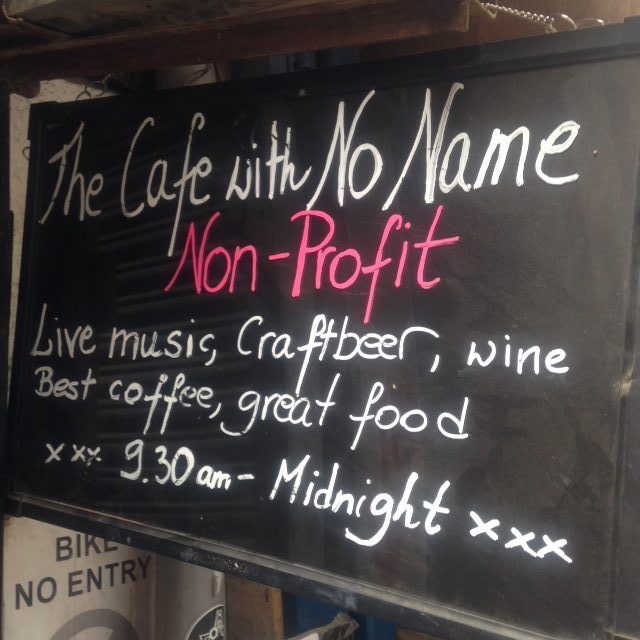 The Cafe with No Name
Non-Profit
Live music, Craftbeer, wine
Best coffee, great food
xxx 9.30am - Midnight xxx
BIKE
NO ENTRY